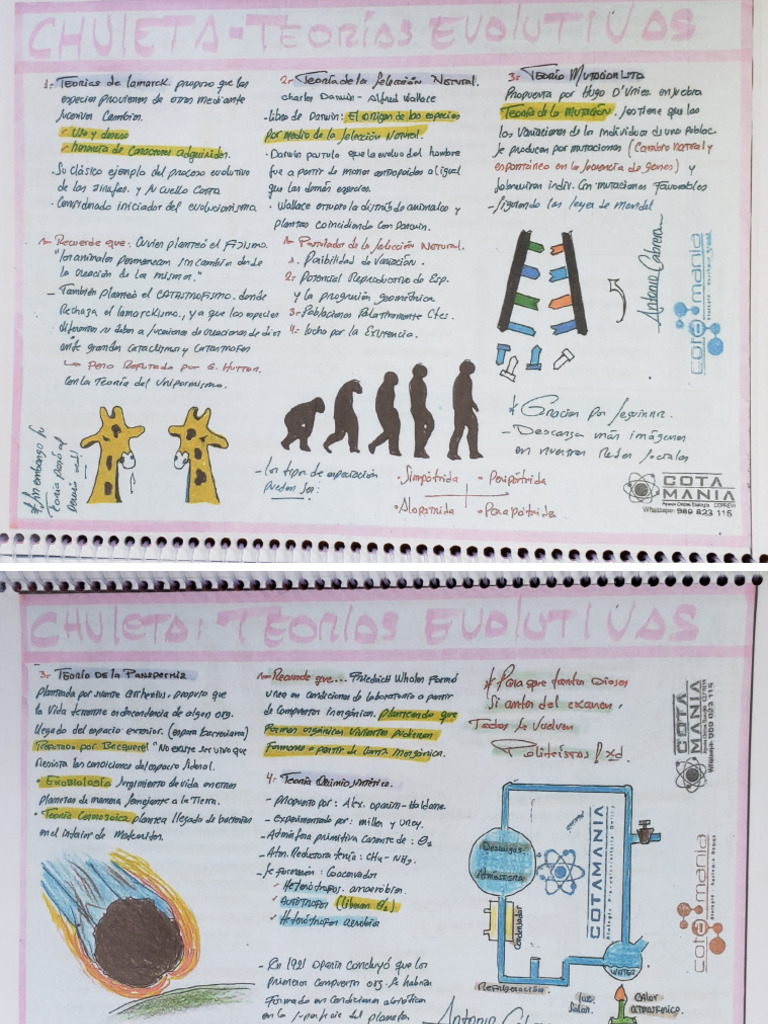 CHULETA - TEORÍAS EVOLUTIVAS
1- Teorías de Lamarck. propuso que las
especies provienen de otras mediante
sucesivos Cambios.
✓ Uso y desuso
✓ herencia de caracteres adquiridos.
· Su clásico ejemplo del proceso evolutivo
de las jirafas. y su cuello Corto
· Considerado iniciador del evolucionismo.
Recuerde que: Cuvier planteó el Fijismo.
"los animales permanecen sin cambios desde
la creación de los mismos."
- También planteó el CATASTROFISMO. donde
Rechaza el lamarckismo, y a que las especies
diferentes se deben a sucesiones de creaciones de dios
ante grandes cataclismos y Catastrofes
↳ Pero Refutado por G. Hutton.
Con la Teoría del Uniformismo.
* Sin embargo su
Teoría pasó al
2- Teoría de la Selección Natural.
Charles Darwin - Alfred Wallace
- Libro de Darwin: El origen de las especies
por medio de la Selección Natural.
· Darwin postula que la evoluc del hombre
fue a partir de monos antropoides al igual
que las demás especies.
· Wallace estudio la distrib de animales y
plantas coincidiendo con Darwin.
Postulados de la Selección Natural.
1. Posibilidad de Variación.
2- Potencial Reproductivo de Esp.
y la progresión geométrica
3- Poblaciones Relativamente Ctes.
4- lucha por la Existencia.
- Los tipos de especiación
pueden ser:
· Simpátrida · Peripátrida
· Alopatrida · Parapátrida
3- Teoría Mutacionista
Propuesta por Hugo D'Vries en su obra
Teoría de la Mutación. sostiene que las
las Variaciones de los individuos de una Poblac.
se producen por mutaciones (Cambio natural y
espontáneo en la secuencia de genes) y
sobreviven indiv. Con mutaciones Favorables
- Siguiendo las leyes de mendel
Antonio Cabrera
cotamania
* Gracias por seguirnos.
- Descarga más imágenes
en nuestras Redes Sociales
COTA
MANIA
Whatsapp: 989 823 115
CHULETA: TEORÍAS EVOLUTIVAS
3- Teoría de la Panspermia
planteada por Svante Arrhenius, propuso que
la Vida terrestre es descendencia de algun org.
llegado del espacio exterior. (espora bacteriana)
Refutado por Becquerel "No existe ser vivo que
Resista las condiciones del espacio sideral.
· Exobiología surgimiento de vida en otros
planetas de manera semejante a la Tierra.
· Teoría Cosmozoica plantea llegada de bacterias
en el interior de Meteoritos.
Recuerde que... Friedrich Wholer Formó
Urea en condiciones de laboratorio a partir
de Compuestos inorgánicos. planteando que
Formas orgánicas Vivientes pudieron
Formarse a partir de Cosas Inorgánicas.
4- Teoría Quimiosintética.
- propuesto por: Alex. oparin - Haldane.
- experimentado por: miller y Urey.
- Admósfera primitiva Carente de: O2
- Atm. Reductora tenía: CH4 - NH3.
- Se formaron: Coacervados
✓ Heterótrofos. anaerobios.
✓ Autótrofos (liberan O2)
✓ Heterótrofos aerobios
- En 1921 Oparin Concluyó que los
primeros compuestos org. se habían
Formado en Condiciones abióticas
en la superficie del planeta
* Para que tantos Dioses
Si antes del examen,
Todos se vuelven
Politeístas! xd.
COTA
MANIA
Whatsapp: 989 823 115
Descargas
Atmósfera
COTAMANIA
Condensador
Refrigeración
WATER
CALOR
ATMOSFERICO.
cotamania
Antonio Cabrera